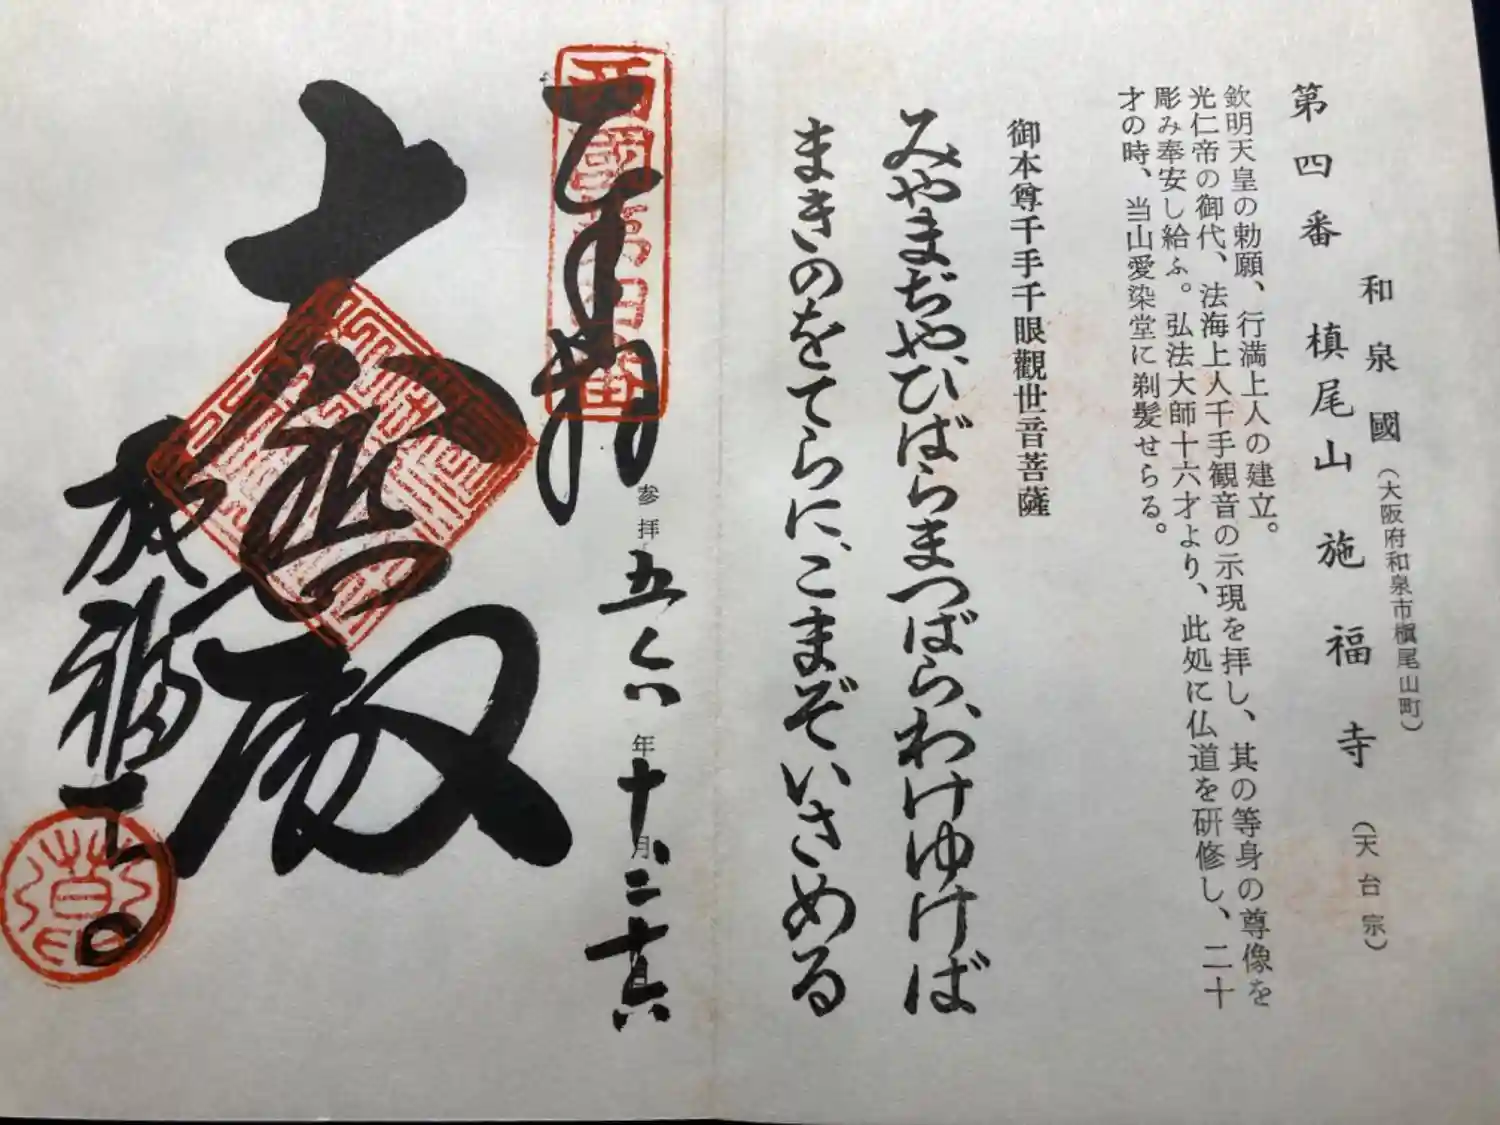 和泉國(大阪府和泉市槇尾山町)
第四番 槙尾山 施福寺(天台宗)
欽明天皇の勅願、行満上人の建立。
光仁帝の御代、法海上人千手観音の示現を拝し、其の等身の尊像を
彫み奉安し給ふ。弘法大師十六才より、此処に仏道を研修し、二十
才の時、当山愛染堂に剃髪せらる。
御本尊千手千眼觀世音菩薩
みやまぢや、ひばらまつばら、わけゆけば
まきのをてらに、こまぞいさめる
西國第四番
参拝
年十月二十六
大悲殿
施福寺